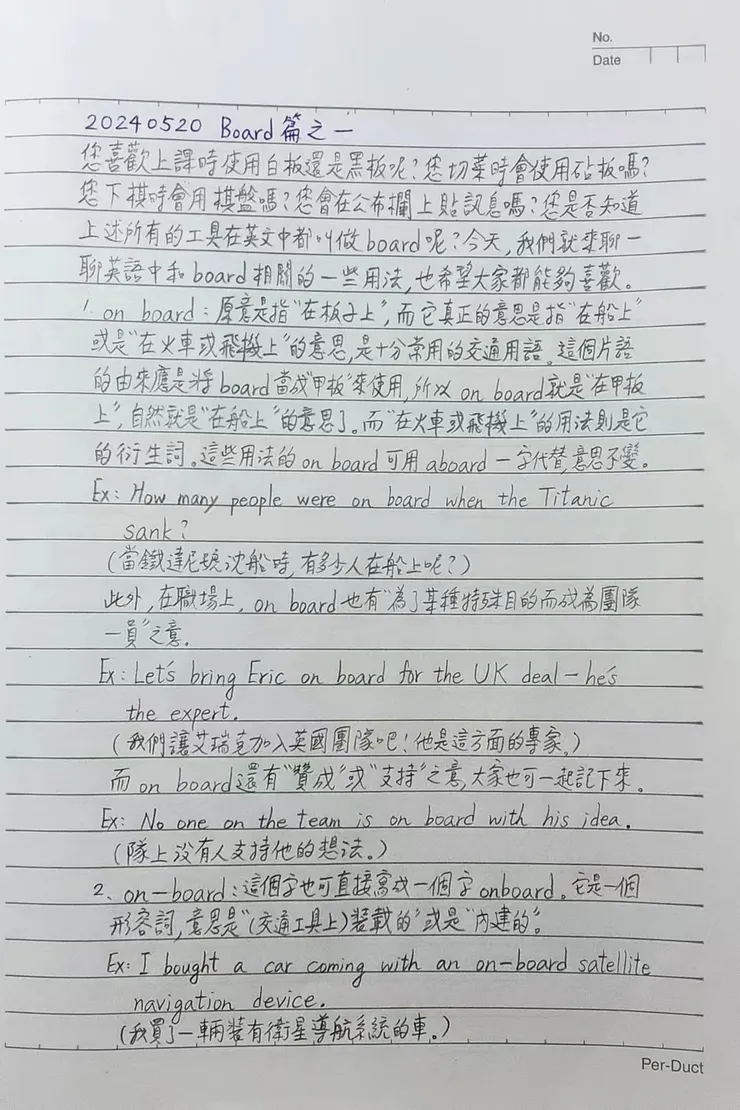 No.
Date
20240520 Board 篇之一
您喜歡上課時使用白板還是黑板呢？您切菜時會使用砧板嗎？
您下棋時會用棋盤嗎？您會在公布欄上貼訊息嗎？您是否知道
上述所有的工具在英文中都叫做board呢？今天，我們就來聊一
聊英語中和board相關的一些用法，也希望大家都能夠喜歡。
1. on board：原意是指"在板子上"，而它真正的意思是指"在船上"
或是"在火車或飛機上"的意思，是十分常用的交通用語。這個片語
的由來應是將board當成"甲板"來使用，所以 on board就是"在甲板
上"，自然就是"在船上"的意思了。而"在火車或飛機上"的用法則是它
的衍生詞。這些用法的on board可用aboard一字代替，意思不變。
Ex: How many people were on board when the Titanic
sank?
(當鐵達尼號沈船時，有多少人在船上呢？)
此外，在職場上，on board也有"為了某種特殊目的而成為團隊
一員"之意。
Ex: Let's bring Eric on board for the UK deal — he's
the expert.
(我們讓艾瑞克加入英國團隊吧！他是這方面的專家。)
而on board還有"贊成"或"支持"之意，大家也可一起記下來。
Ex: No one on the team is on board with his idea.
(隊上沒有人支持他的想法。)
2、on-board：這個字也可直接寫成一個字onboard。它是一個
形容詞，意思是"(交通工具上)裝載的"或是"內建的"。
Ex: I bought a car coming with an on-board satellite
navigation device.
(我買了一輛裝有衛星導航系統的車。)
Per-Duct